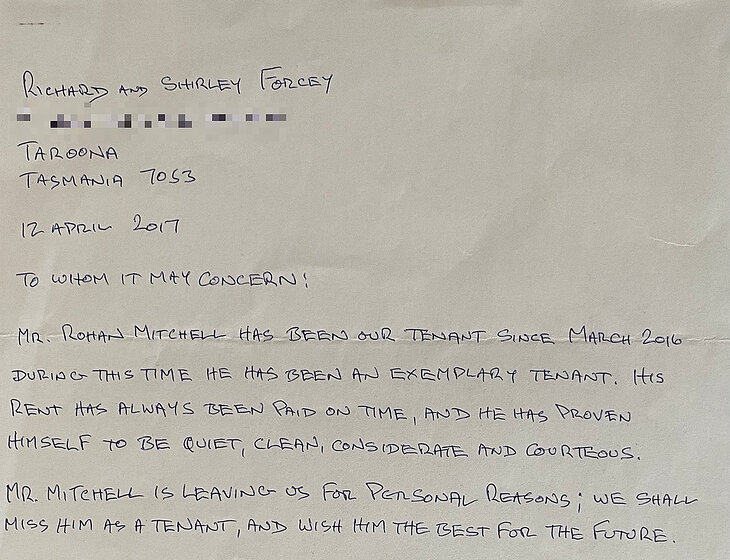 RICHARD AND SHIRLEY FORCEY
TAROONA
TASMANIA 7053
12 APRIL 2017
TO WHOM IT MAY CONCERN:
MR. ROHAN MITCHELL HAS BEEN OUR TENANT SINCE MARCH 2016
DURING THIS TIME HE HAS BEEN AN EXEMPLARY TENANT. HIS
RENT HAS ALWAYS BEEN PAID ON TIME, AND HE HAS PROVEN
HIMSELF TO BE QUIET, CLEAN, CONSIDERATE AND COURTEOUS.
MR. MITCHELL IS LEAVING US FOR PERSONAL REASONS; WE SHALL
MISS HIM AS A TENANT, AND WISH HIM THE BEST FOR THE FUTURE.